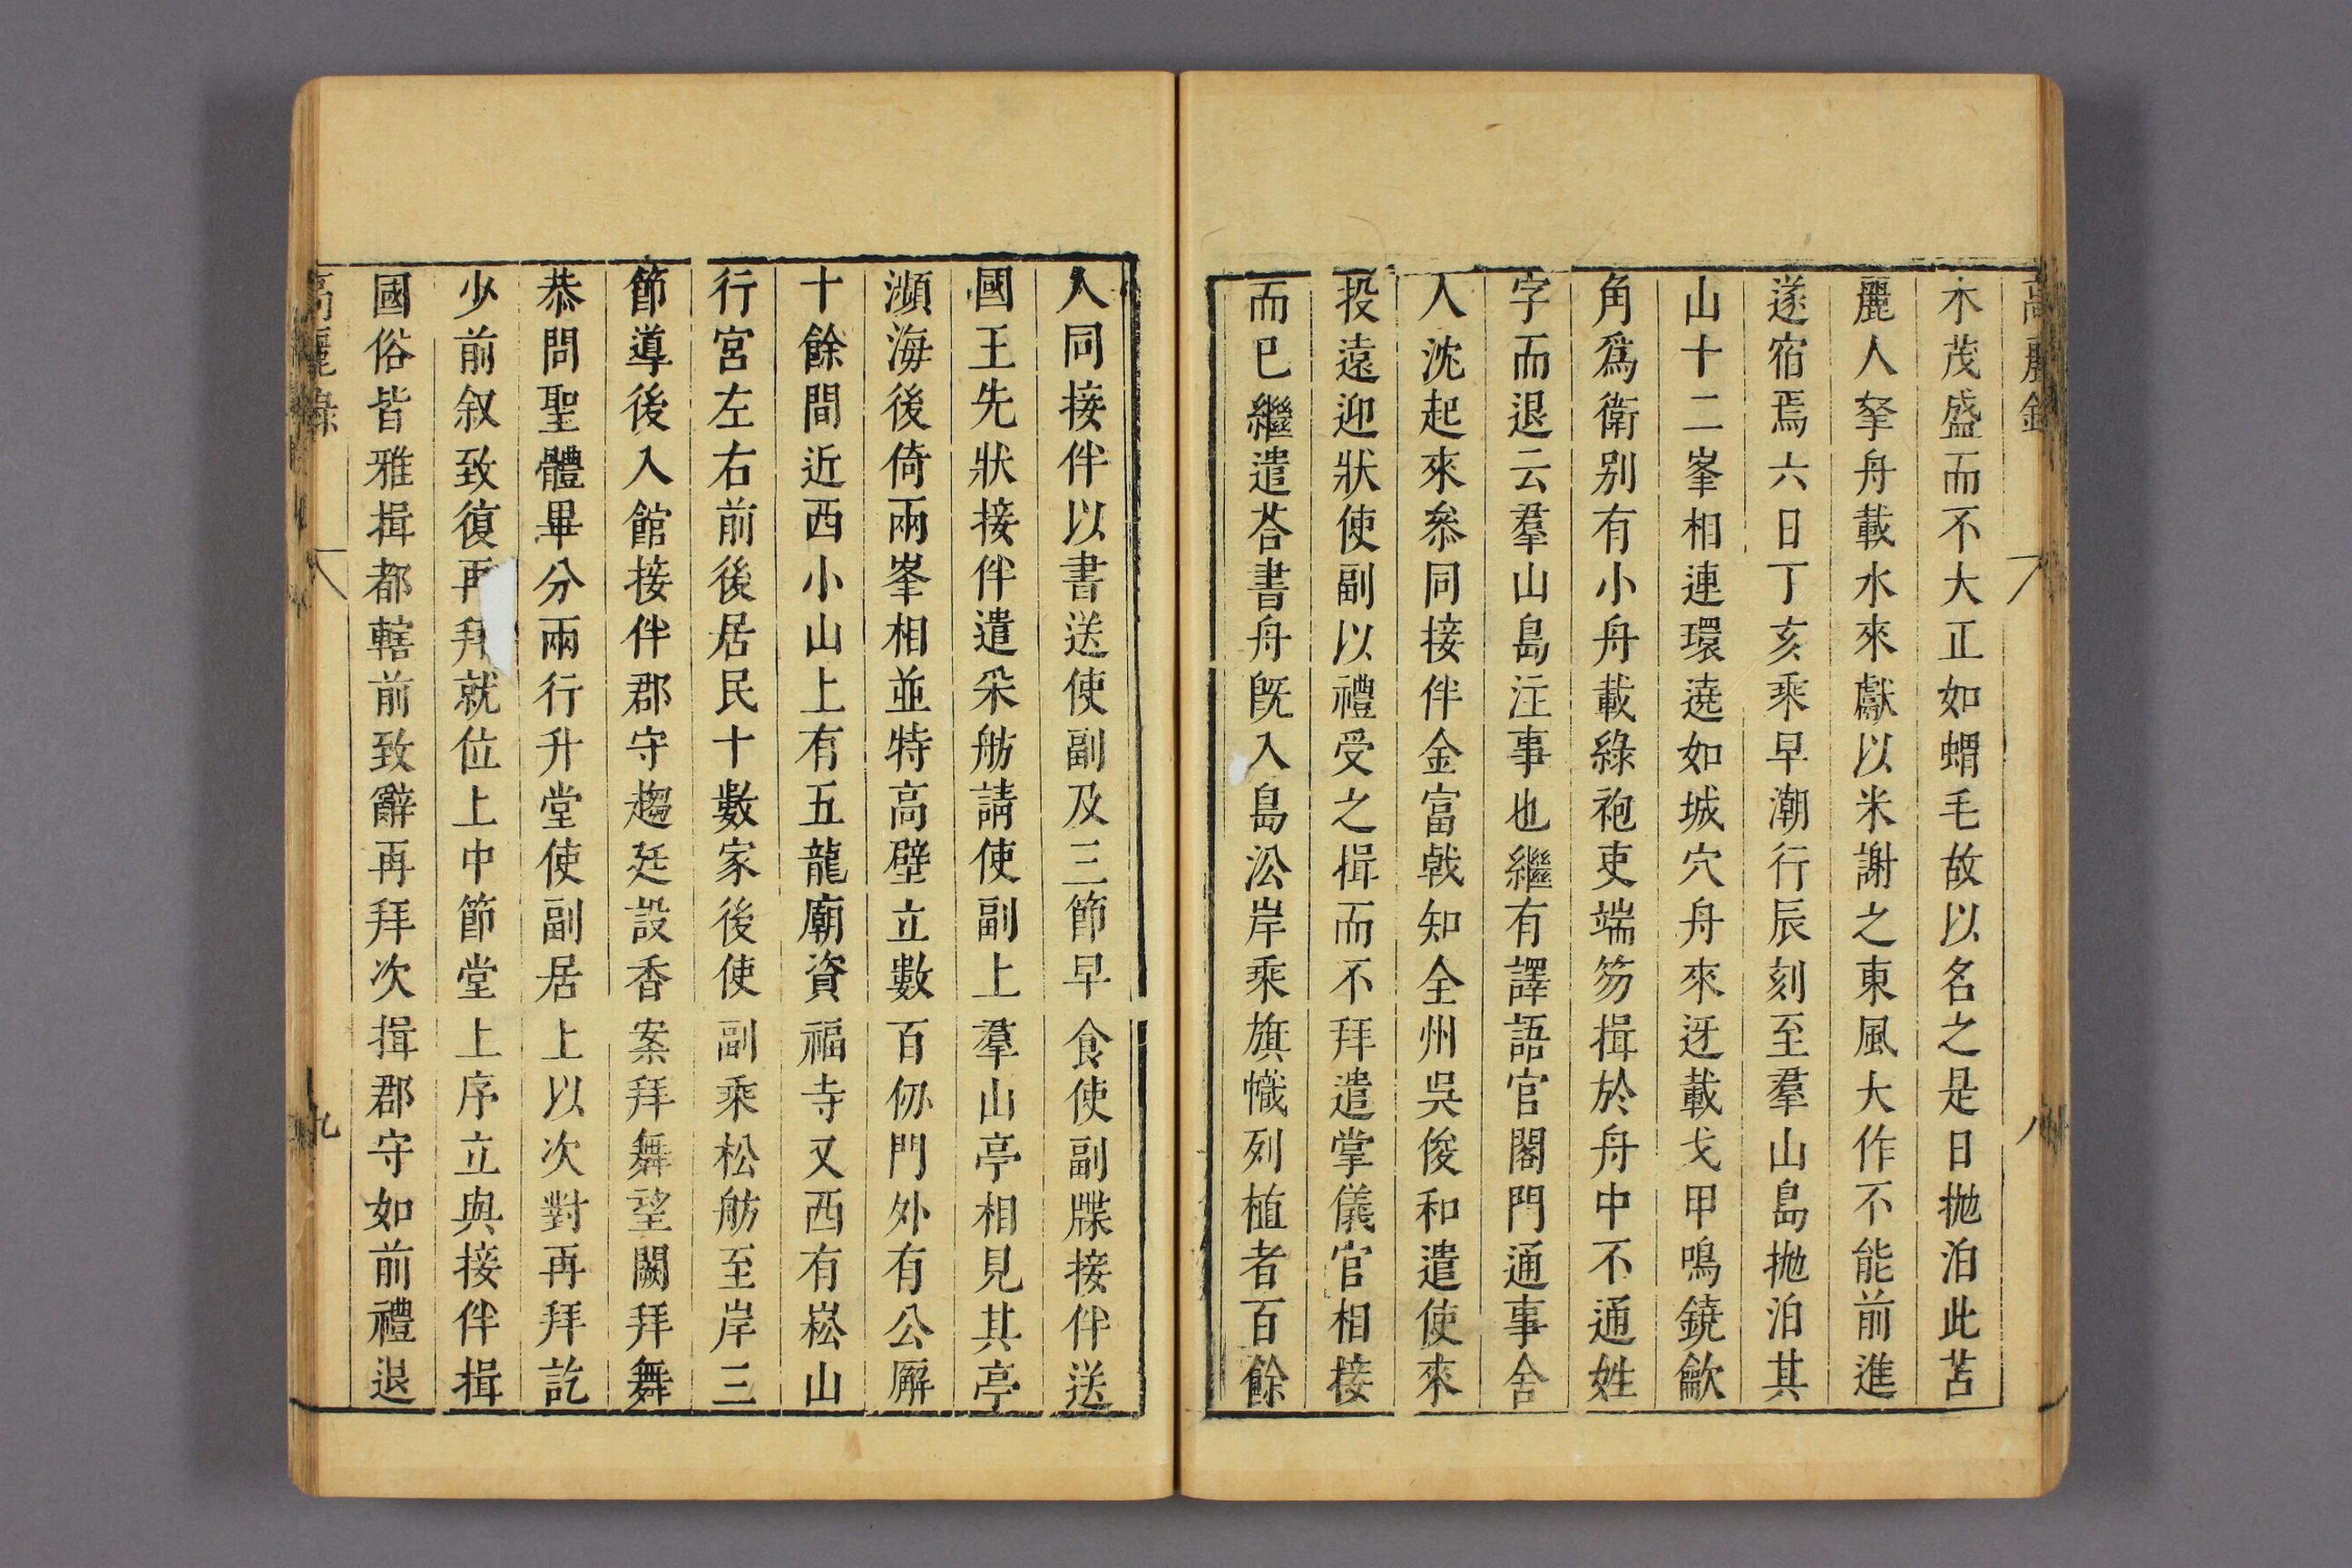 高麗錄
八
木茂盛而不大正如蝟毛故以名之是日抛泊此苫
麗人拏舟載水來獻以米謝之東風大作不能前進
遂宿焉六日丁亥乘早潮行辰刻至羣山島抛泊其
山十二峯相連環遶如城穴舟來迓載戈甲鳴鐃歙
角爲衛别有小舟載綠袍吏端笏揖於舟中不通姓
字而退云羣山島注事也繼有譯語官閤門通事舍
人沈起來叅同接伴金富㦸知全州吳俊和遣使來
投遠迎狀使副以禮受之揖而不拜遣掌儀官相接
而已繼遣荅書舟旣入島㳂岸乘旗幟列植者百餘
人同接伴以書送使副及三節早食使副牒接伴送
國王先狀接伴遣采舫請使副上羣山亭相見其亭
瀕海後倚兩峯相並特高壁立數百仞門外有公廨
十餘間近西小山上有五龍廟資福寺又西有崧山
行宮左右前後居民十數家後使副乘松舫至岸三
節導後入館接伴郡守趨廷設香案拜舞望闕拜舞
恭問聖體畢分兩行升堂使副居上以次對再拜訖
少前叙致復再拜就位上中節堂上序立與接伴揖
國俗皆雅揖都轄前致辭再拜次揖郡守如前禮退
高麗錄
九